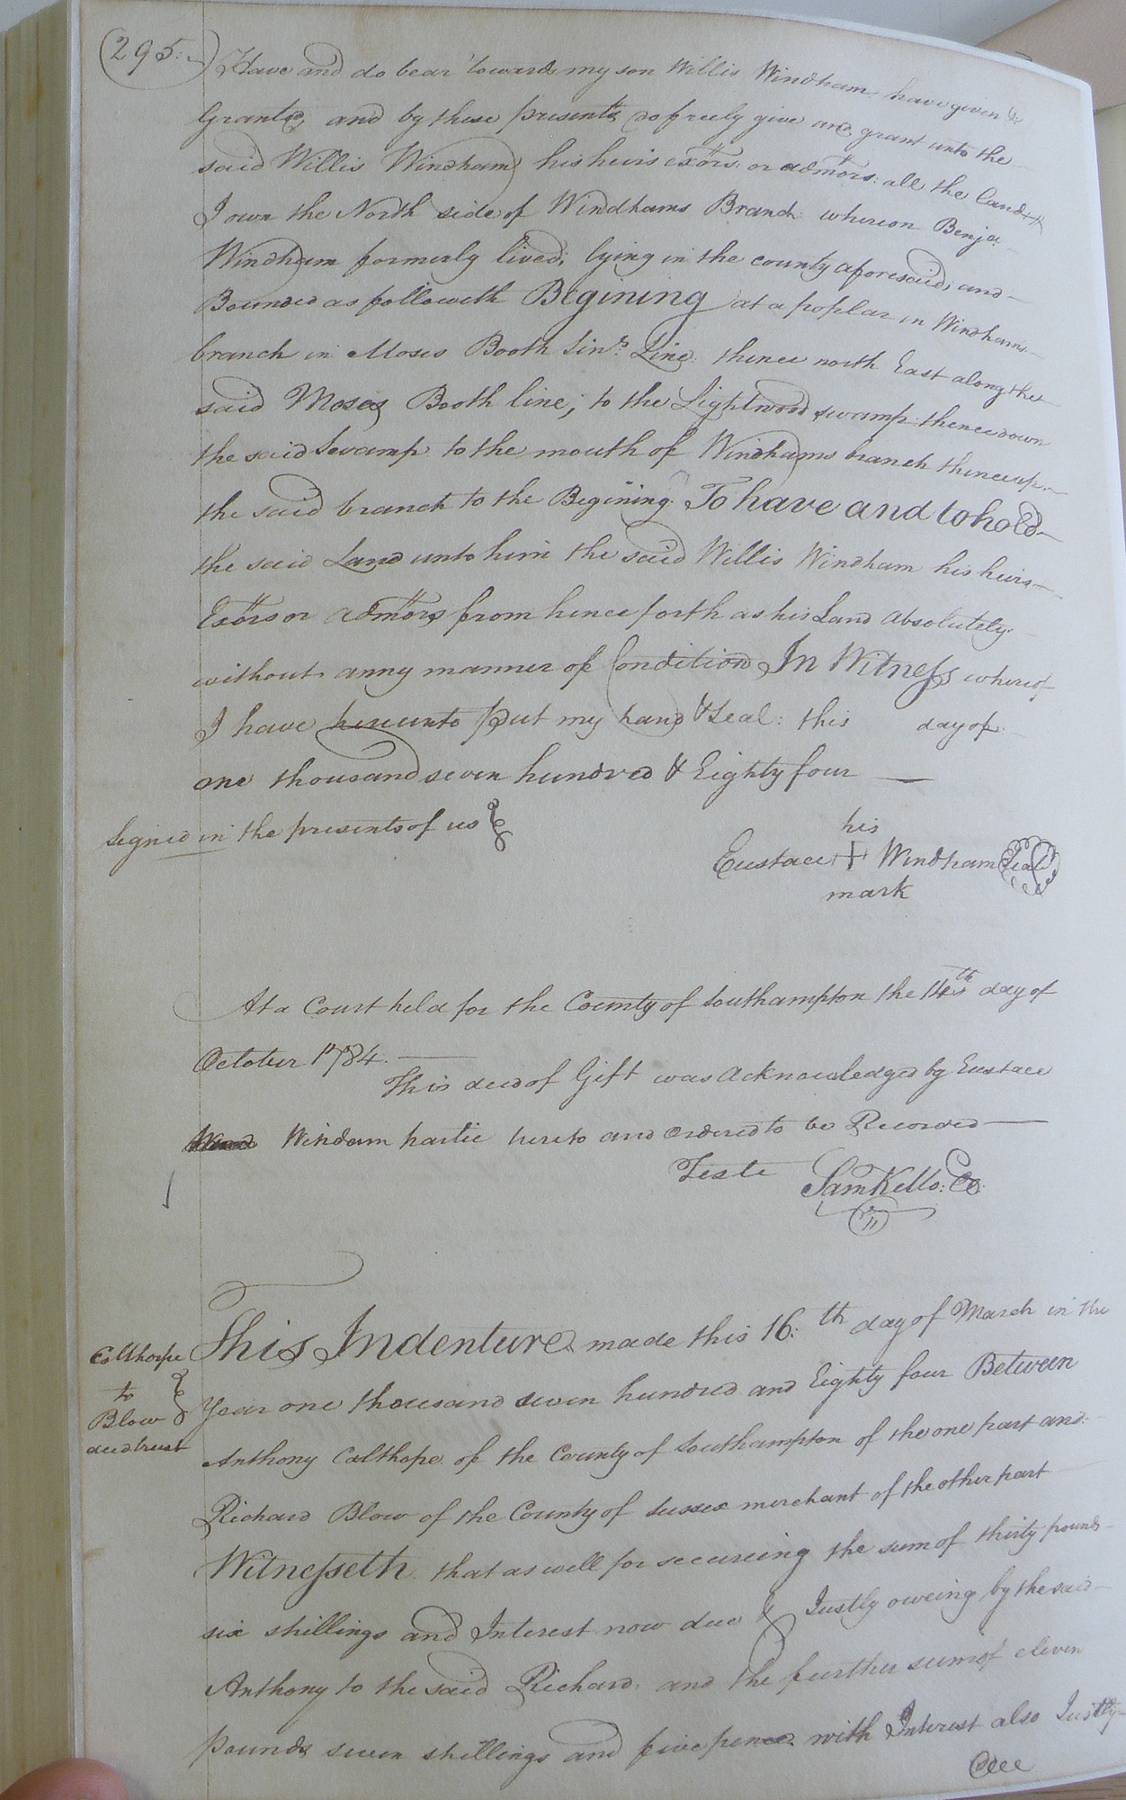 (295)
Have and do bear towards my son Willis Windham have given &
Granted, and by these presents do freely give and grant unto the
said Willis Windham his heirs exōrs. or admōrs: all the Land
I own the North side of Windhams Branch whereon Benja.
Windham formerly lived, lying in the county aforesaid, and
Bounded as followeth Begining at a poplar in Windhams
branch in Moses Booth Sinr. Line: thence north East along the
said Moses Booth line; to the Lightwood swamp: thence down
the said Swamp to the mouth of Windhams branch thence up
the said branch to the Begining To have and to hold
the said Land unto him the said Willis Windham his heirs
Exōrs or admōrs from hence forth as his Land absolutely
without anny manner of Condition In Witness whereof
I have hereunto put my hand & Seal: this day of
one thousand seven hundred & Eighty four
Signed in the presents of us
his
Eustace + Windham Seal
mark
At a Court held for the County of Southampton the 14th day of
October 1784.
This deed of Gift was Acknowledged by Eustace
Windam partie hereto and ordered to be Recorded
Teste Sam Kello: Cc.
Calthorpe
to
Blow
deed trust
This Indenture made this 16:th day of March in the
Year one thousand seven hundred and Eighty four Between
Anthony Calthope of the County of Southampton of the one part and:
Richard Blow of the County of Sussex merchant of the other part
Witnesseth that as well for secureing the sum of thirty pounds
six shillings and Interest now due & Justly oweing by the said
Anthony to the said Richard, and the further sum of eleven
pounds seven shillings and five pence with Interest also Justly